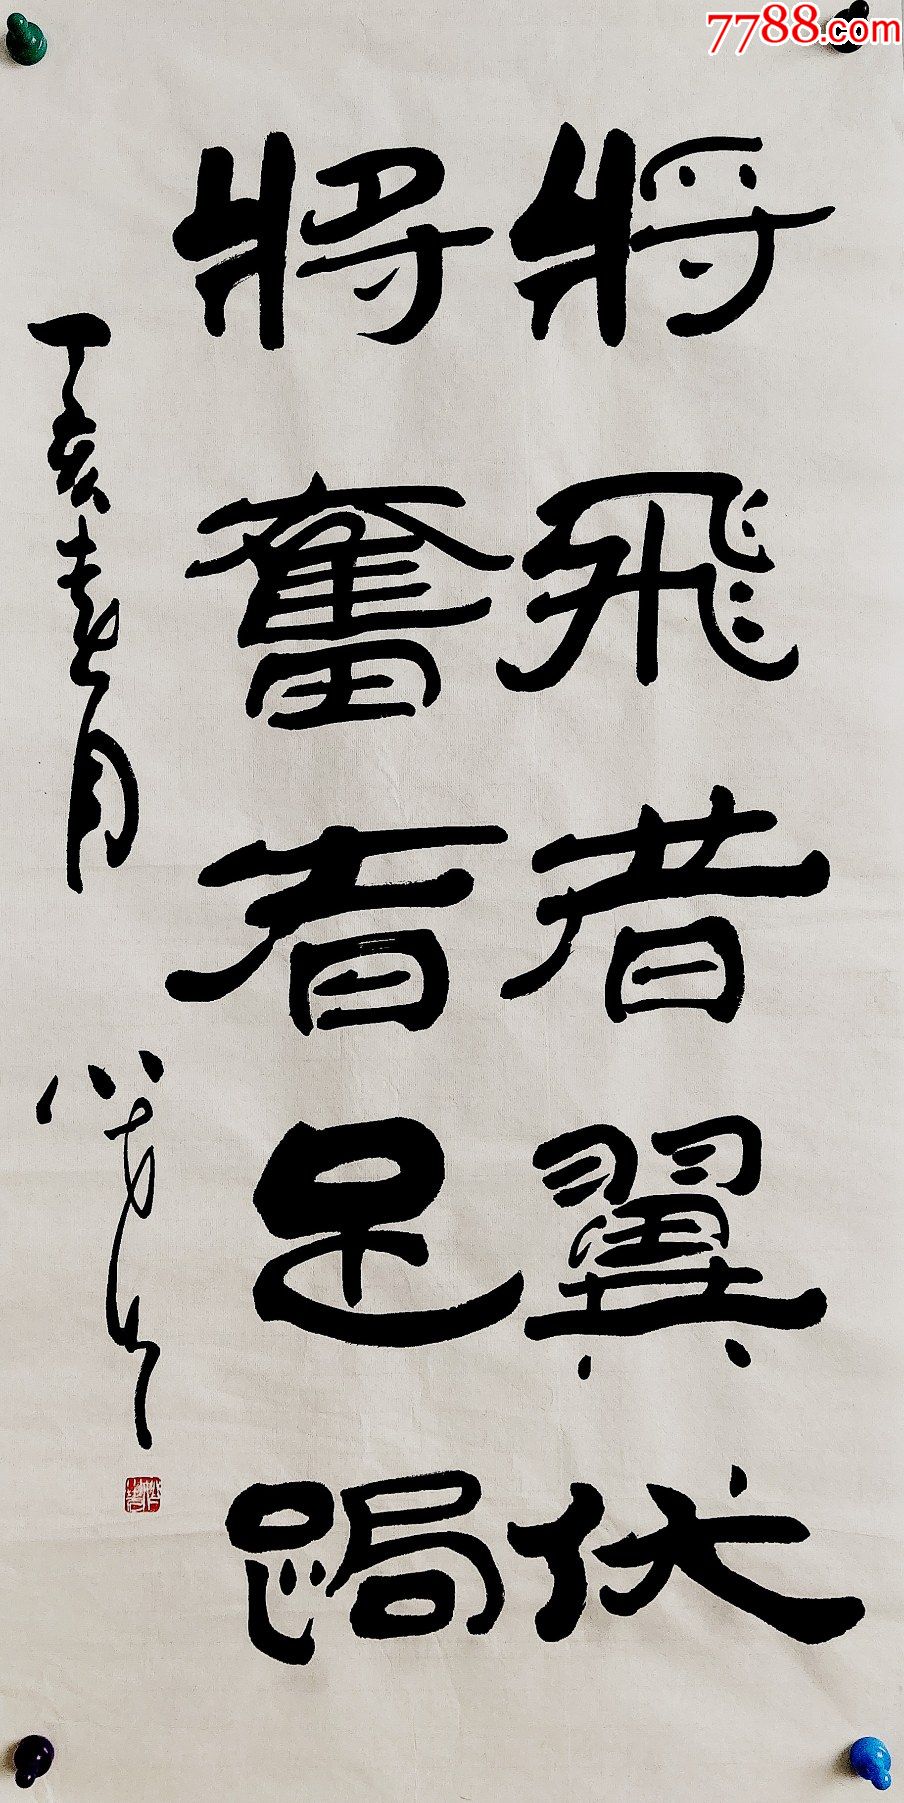 7788.com
將飛者翼伏
將奮者足跼
丁亥春月